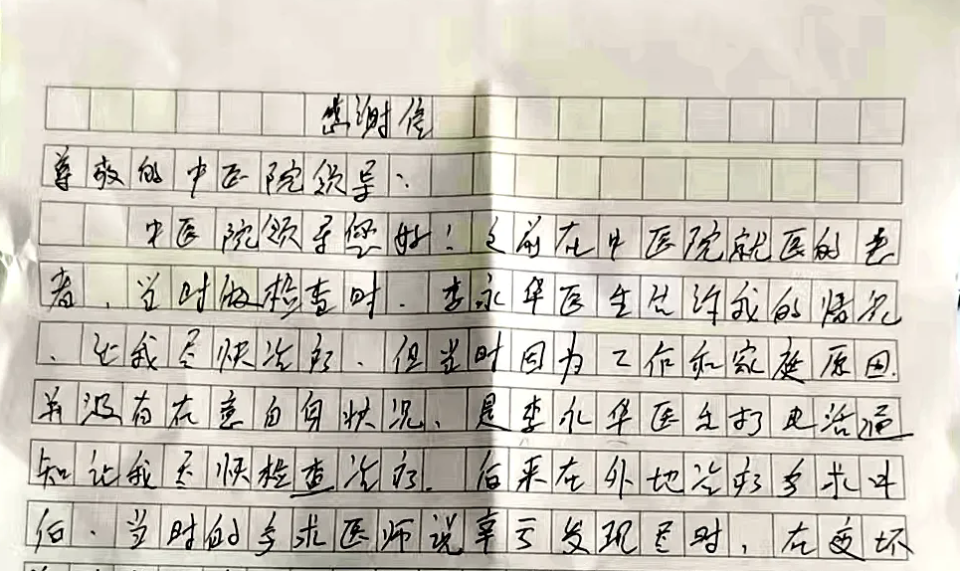 感谢信
尊敬的中医院领导：
中医院领导您好！之前在中医院就医的患
者，当时做检查时，李永华医生告诉我的情况
、让我尽快治疗、但当时因为工作和家庭原因.
并没有在意自身状况、是李永华医生打电话通
知让我尽快检查治疗. 后来在外地治疗手术
后、当时的手术医师说幸亏发现及时，在变坏